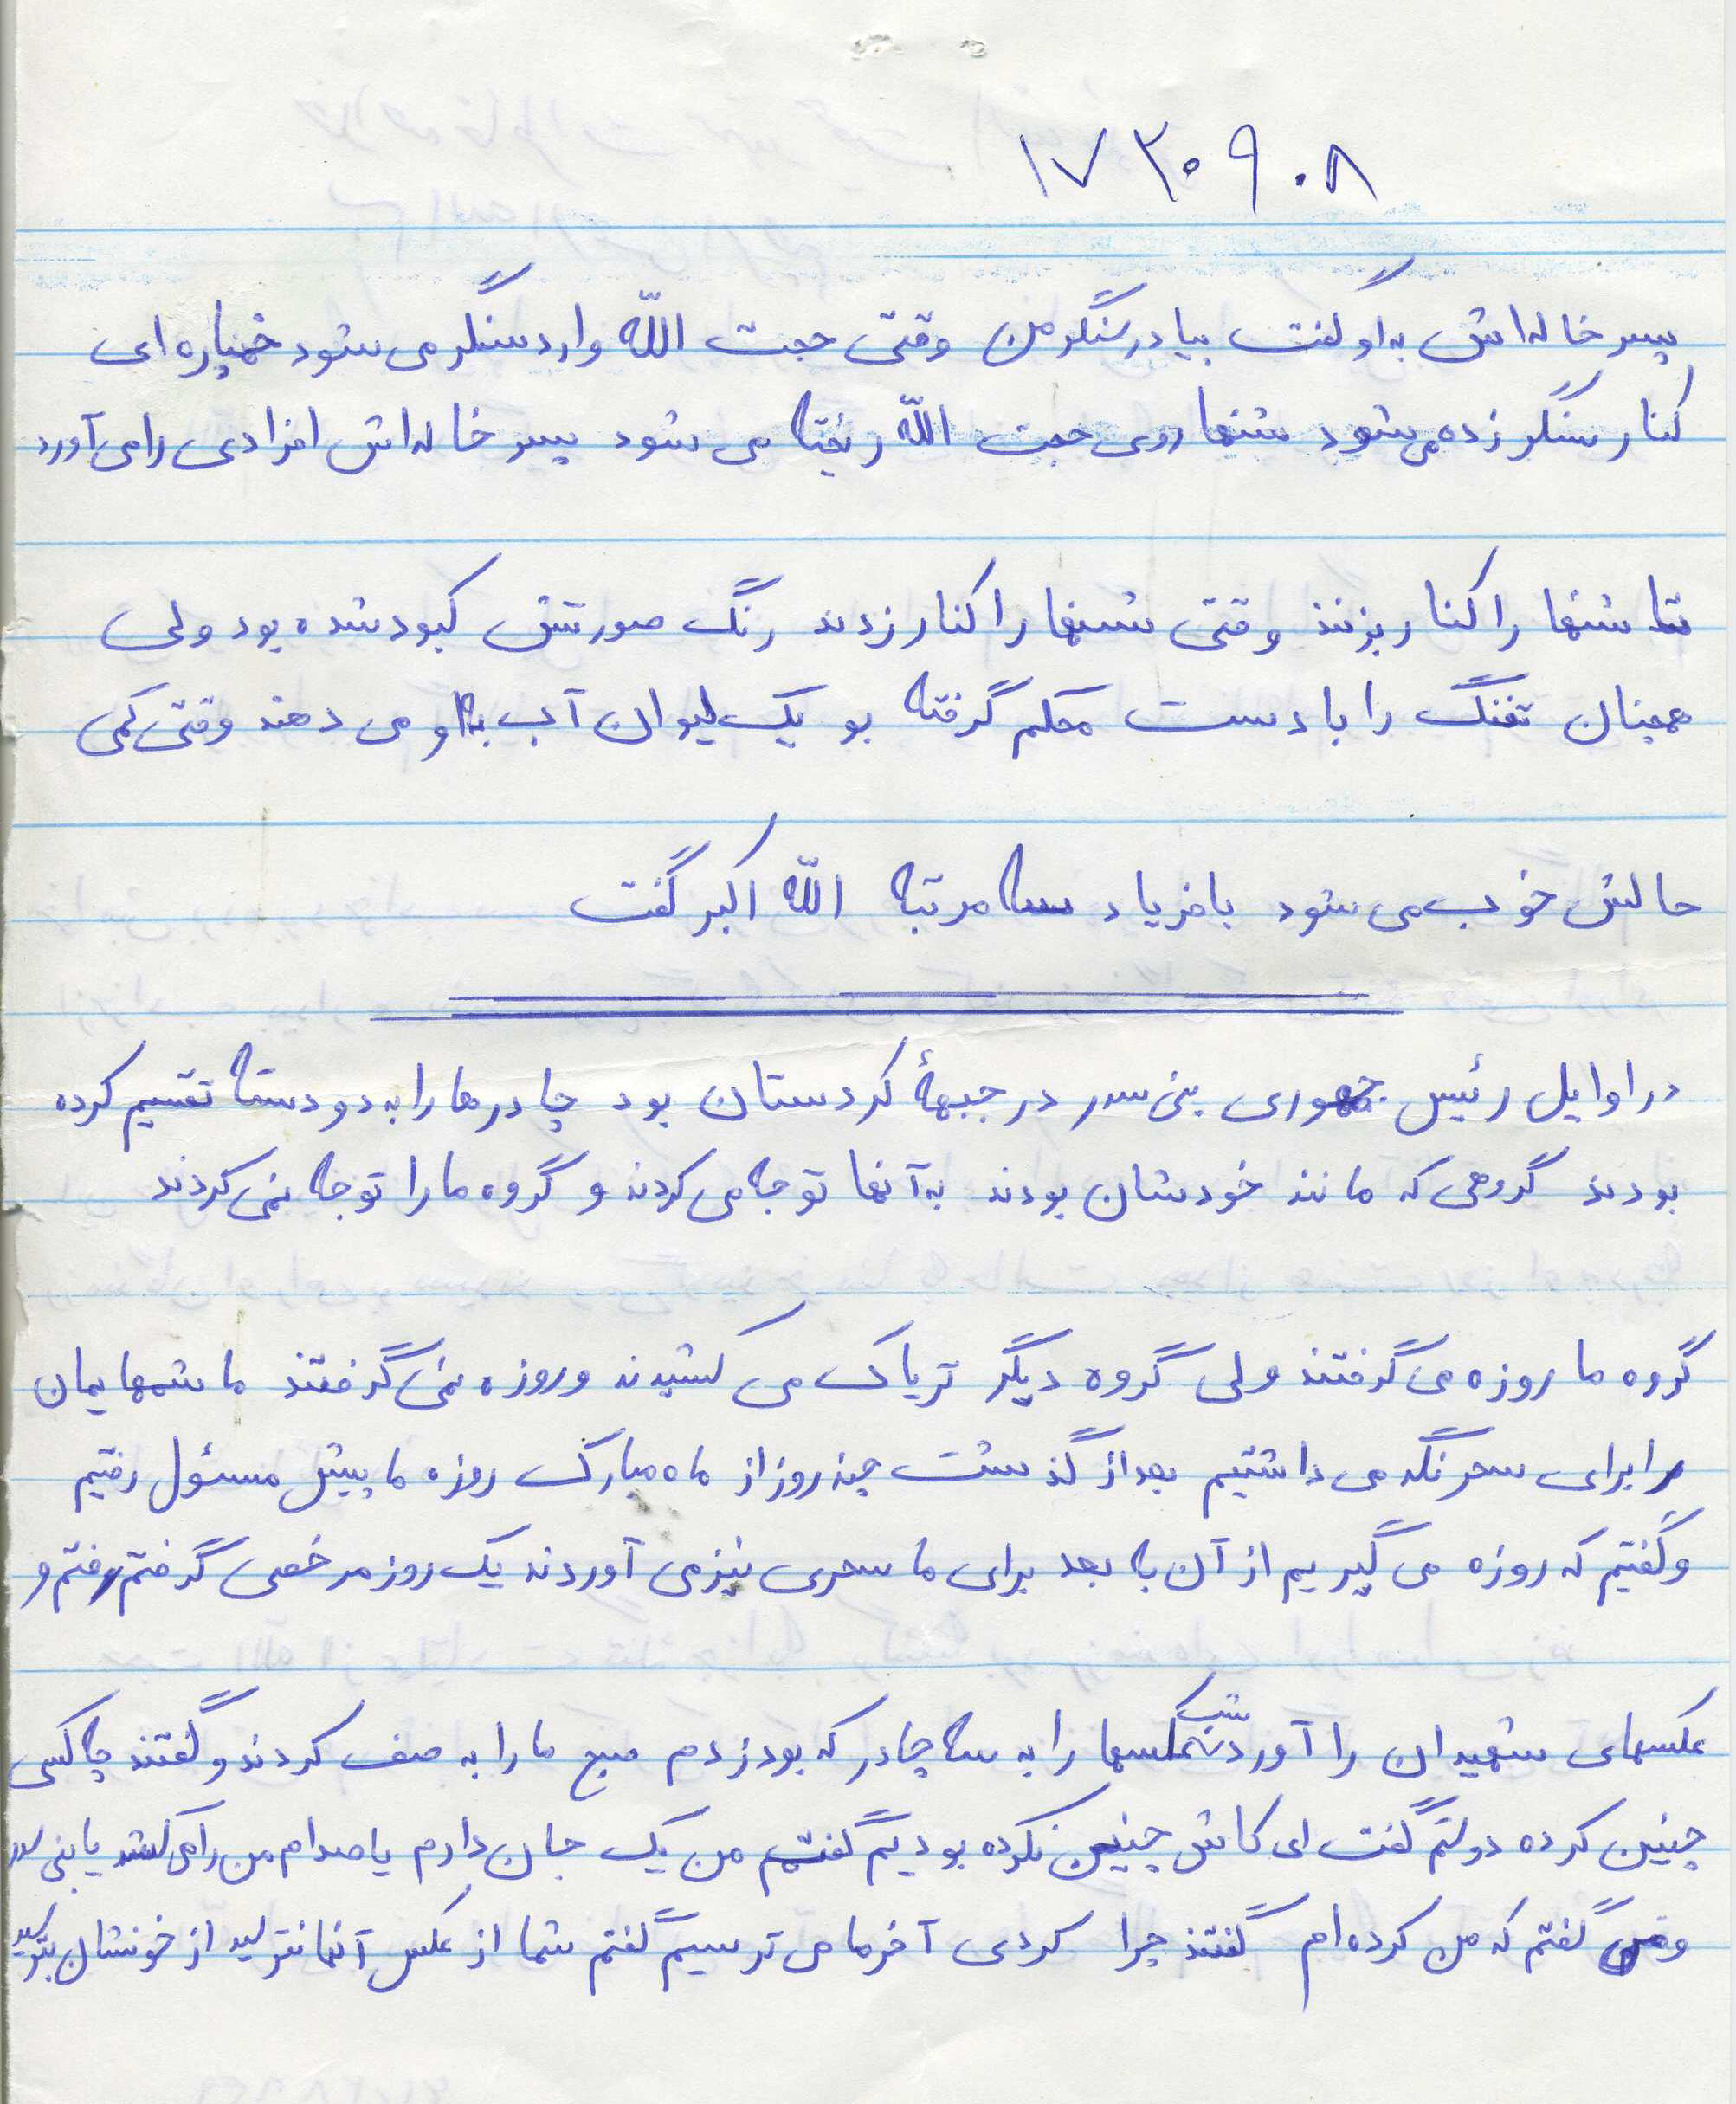 ۱۷۳۰۹۰۸
پسر خاله‌اش به او گفت بیا در سنگر من وقتی حجت اللّه وارد سنگر می شود خمپاره ای
کنار سنگر زده می شود شنها روی حجت اللّه ریخته می شود پسر خاله‌اش افرادی را می آورد
تا شنها را کنار بزنند وقتی شنها را کنار زدند رنگ صورتش کبود شده بود ولی
همچنان تفنگ را با دست محکم گرفته بو یک لیوان آب به او می دهند وقتی کمی
حالش خوب می شود با فریاد سه مرتبه اللّه اکبر گفت
در اوایل رئیس جمهوری بنی سدر در جبههٔ کردستان بود چادرها را به دو دسته تقسیم کرده
بودند گروهی که مانند خودشان بودند به آنها توجه می کردند و گروه ما را توجه نمی کردند
گروه ما روزه می گرفتند ولی گروه دیگر تریاک می کشیدند و روزه نمی گرفتند ما شمهایمان
را برای سحر نگه می داشتیم بعد از گذشت چند روز از ماه مبارک روزه ما پیش مسئول رفتیم
و گفتیم که روزه می گیریم از آن به بعد برای ما سحری نیز می آوردند یک روز مرخصی گرفتم رفتم و
عکسهای شهیدان را آوردم شب عکسها را به سه چادر که بود زدم صبح ما را به صف کردند و گفتند چه کسی
چنین کرده دوستم گفت ای کاش چنین نکرده بودیم گفتم من یک جان دارم یا صدام من را می کشد یا بنی سدر
گفتم که من کرده ام گفتند چرا کردی آخر ما می ترسیم گفتم شما از عکس آنها نترسید از خونشان بترسید